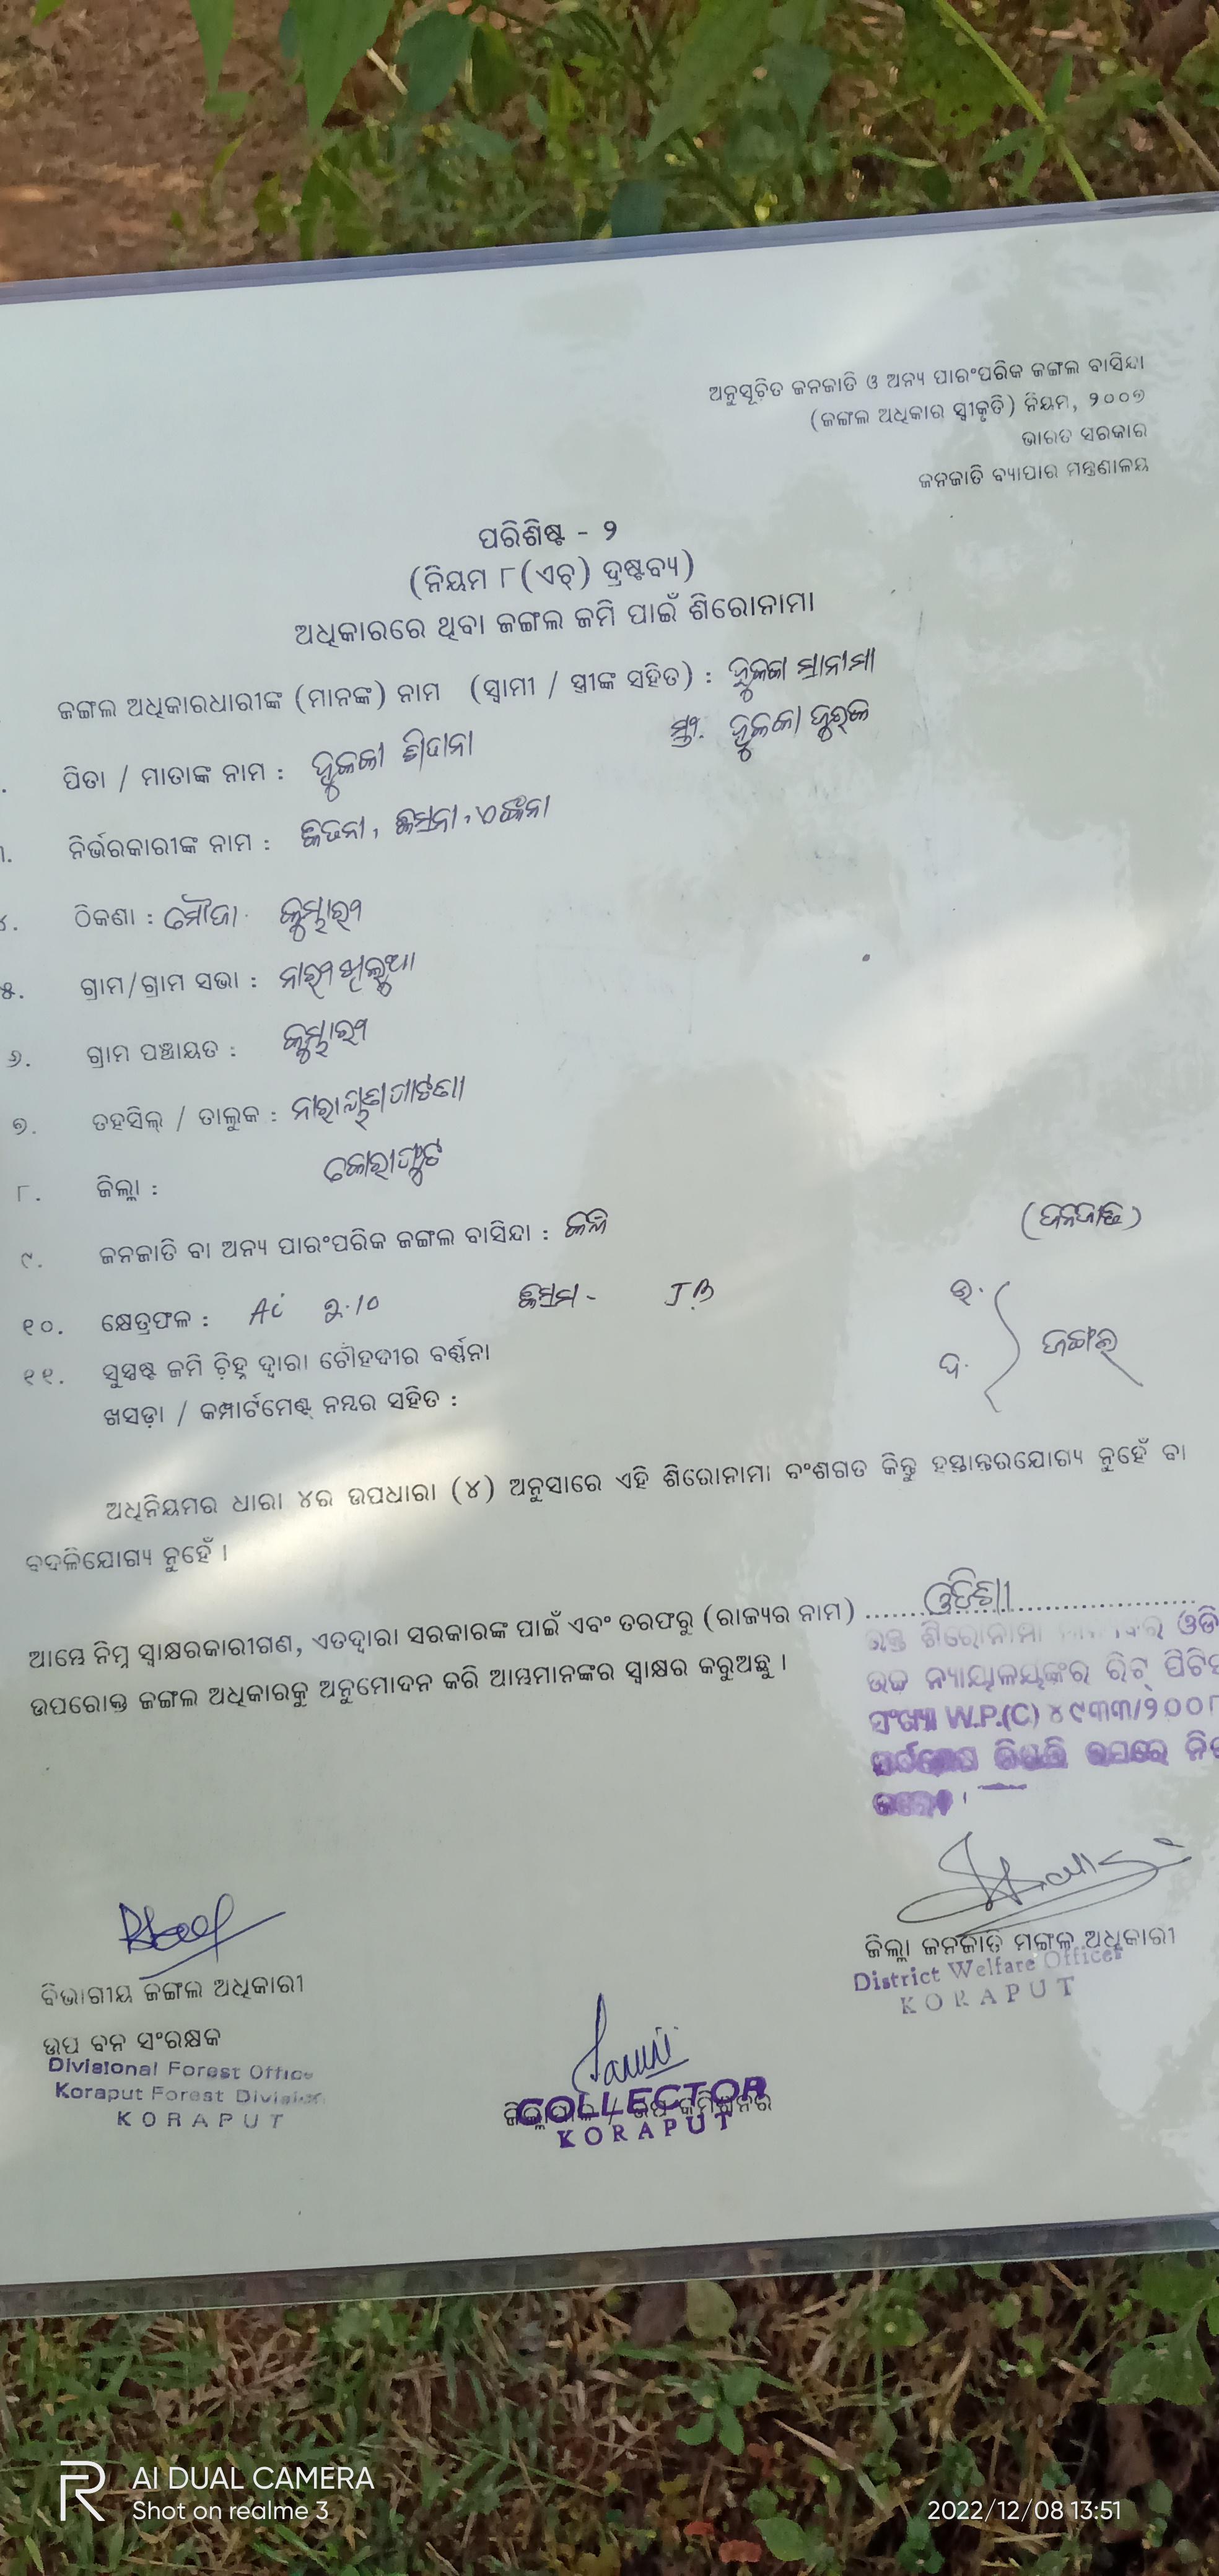 ଅନୁସୂଚିତ ଜନଜାତି ଓ ଅନ୍ୟ ପାରଂପରିକ ଜଙ୍ଗଲ ବାସିନ୍ଦା
(ଜଙ୍ଗଲ ଅଧିକାର ସ୍ୱୀକୃତି) ନିୟମ, ୨୦୦୭
ଭାରତ ସରକାର
ଜନଜାତି ବ୍ୟାପାର ମନ୍ତ୍ରଣାଳୟ
ପରିଶିଷ୍ଟ - ୨
(ନିୟମ ୮(ଏଚ୍) ଦ୍ରଷ୍ଟବ୍ୟ)
ଅଧିକାରରେ ଥିବା ଜଙ୍ଗଲ ଜମି ପାଇଁ ଶିରୋନାମା
ଜଙ୍ଗଲ ଅଧିକାରଧାରୀଙ୍କ (ମାନଙ୍କ) ନାମ (ସ୍ୱାମୀ / ସ୍ତ୍ରୀଙ୍କ ସହିତ) :
ପିତା / ମାତାଙ୍କ ନାମ :
ନିର୍ଭରକାରୀଙ୍କ ନାମ :
୪. ଠିକଣା : ମୌଜା
୫. ଗ୍ରାମ/ଗ୍ରାମ ସଭା :
୬. ଗ୍ରାମ ପଞ୍ଚାୟତ :
୭. ତହସିଲ୍ / ତାଲୁକ : ନାରାୟଣପାଟଣା
୮. ଜିଲ୍ଲା : କୋରାପୁଟ
୯. ଜନଜାତି ବା ଅନ୍ୟ ପାରଂପରିକ ଜଙ୍ଗଲ ବାସିନ୍ଦା : (ଜନଜାତି)
୧୦. କ୍ଷେତ୍ରଫଳ : Ac ୨.10 କିସମ - J.B ଉ.
୧୧. ସୁସ୍ପଷ୍ଟ ଜମି ଚିହ୍ନ ଦ୍ୱାରା ଚୌହଦ୍ଦୀର ବର୍ଣ୍ଣନା ଦ. ଜଙ୍ଗଲ
ଖସଡ଼ା / କମ୍ପାର୍ଟମେଣ୍ଟ୍ ନମ୍ବର ସହିତ :
ଅଧିନିୟମର ଧାରା ୪ର ଉପଧାରା (୪) ଅନୁସାରେ ଏହି ଶିରୋନାମା ବଂଶଗତ କିନ୍ତୁ ହସ୍ତାନ୍ତରଯୋଗ୍ୟ ନୁହେଁ ବା
ବଦଳିଯୋଗ୍ୟ ନୁହେଁ ।
ଆମ୍ଭେ ନିମ୍ନ ସ୍ୱାକ୍ଷରକାରୀଗଣ, ଏତଦ୍ଦ୍ୱାରା ସରକାରଙ୍କ ପାଇଁ ଏବଂ ତରଫରୁ (ରାଜ୍ୟର ନାମ) ଓଡିଶା
ଉପରୋକ୍ତ ଜଙ୍ଗଲ ଅଧିକାରକୁ ଅନୁମୋଦନ କରି ଆମ୍ଭମାନଙ୍କର ସ୍ୱାକ୍ଷର କରୁଅଛୁ ।
ଉକ୍ତ ଶିରୋନାମା
ଉଚ୍ଚ ନ୍ୟାୟାଳୟଙ୍କର ରିଟ୍
ସଂଖ୍ୟା W.P.(C) ୪୯୩୩/୨୦୦୮
ଜିଲ୍ଲା ଜନଜାତି ମଙ୍ଗଳ ଅଧିକାରୀ
District Welfare Officer
KORAPUT
ବିଭାଗୀୟ ଜଙ୍ଗଲ ଅଧିକାରୀ
ଉପ ବନ ସଂରକ୍ଷକ
Divisional Forest Office
Koraput Forest Division
KORAPUT
COLLECTOR
KORAPUT
AI DUAL CAMERA
Shot on realme 3
2022/12/08 13:51